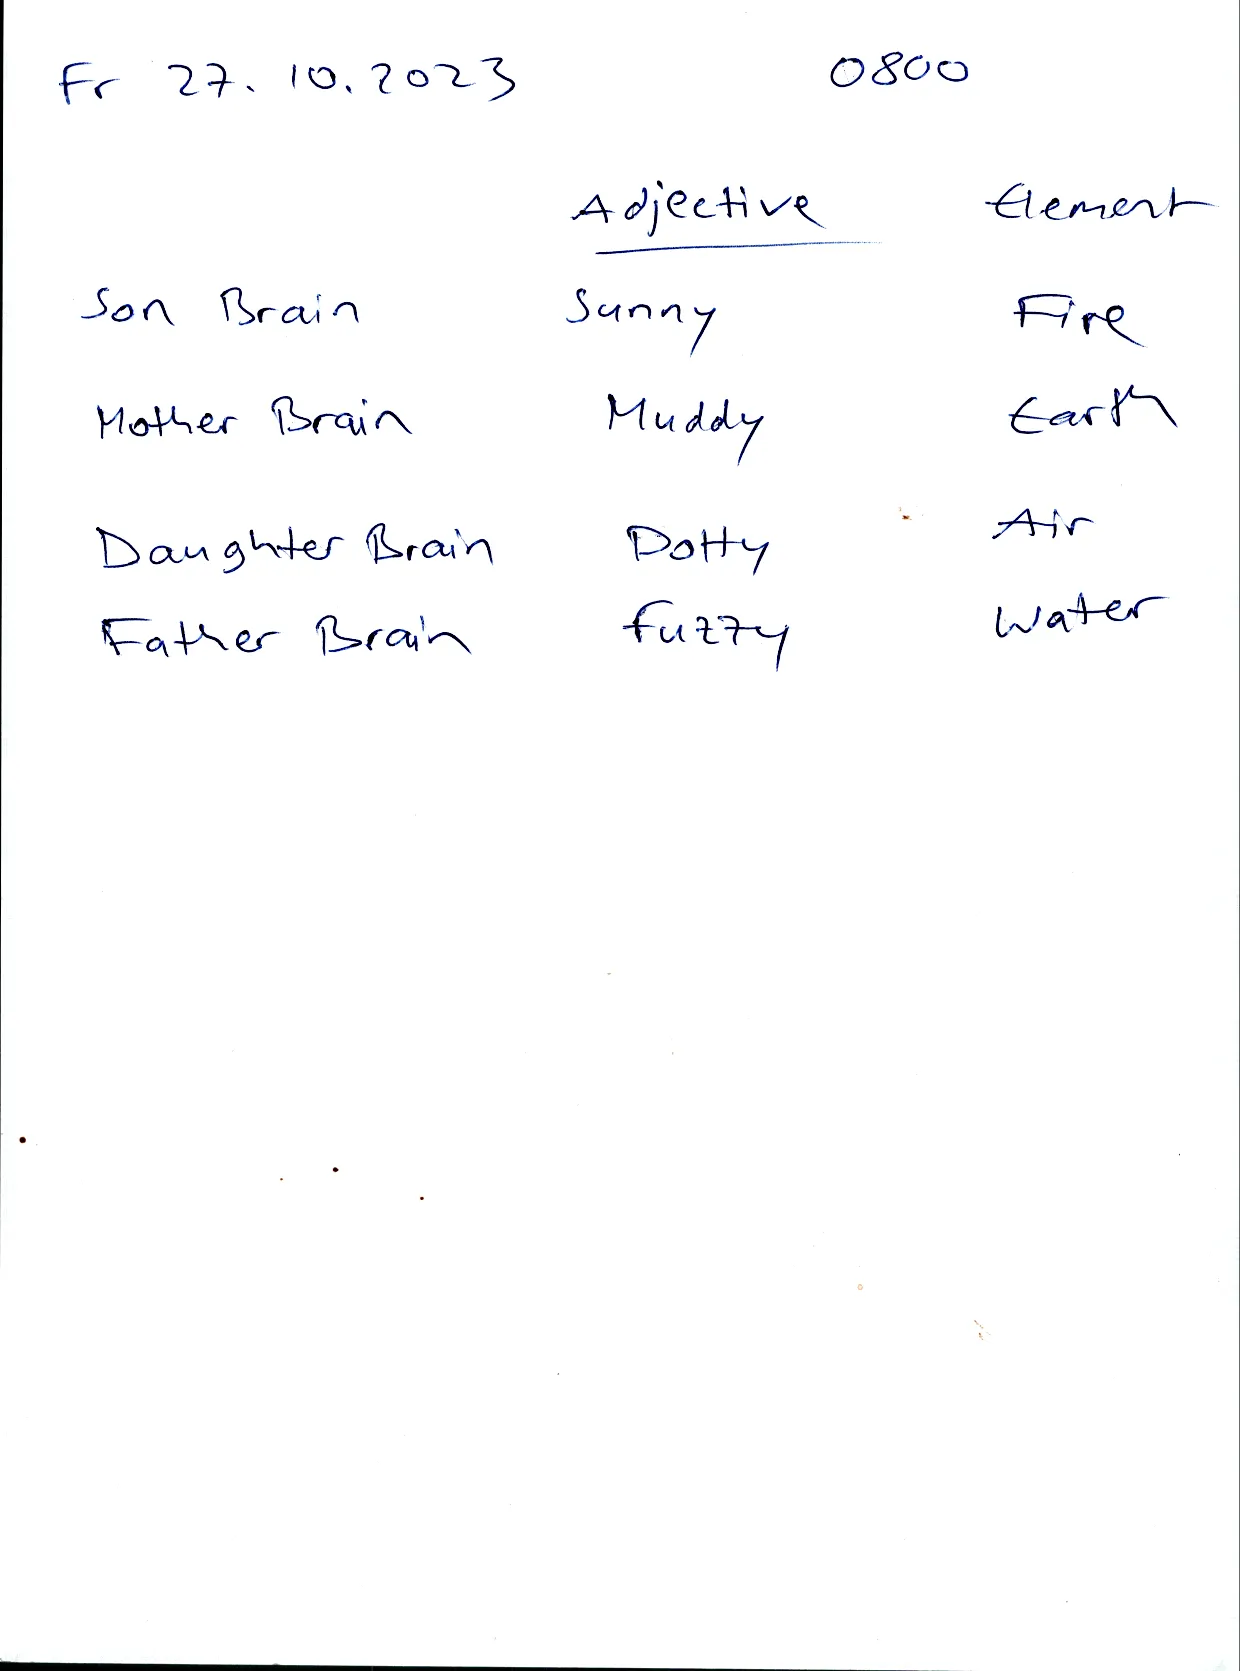 Fr 27.10.2023 0800
Adjective Element
Son Brain Sunny Fire
Mother Brain Muddy Earth
Daughter Brain Dotty Air
Father Brain fuzzy Water